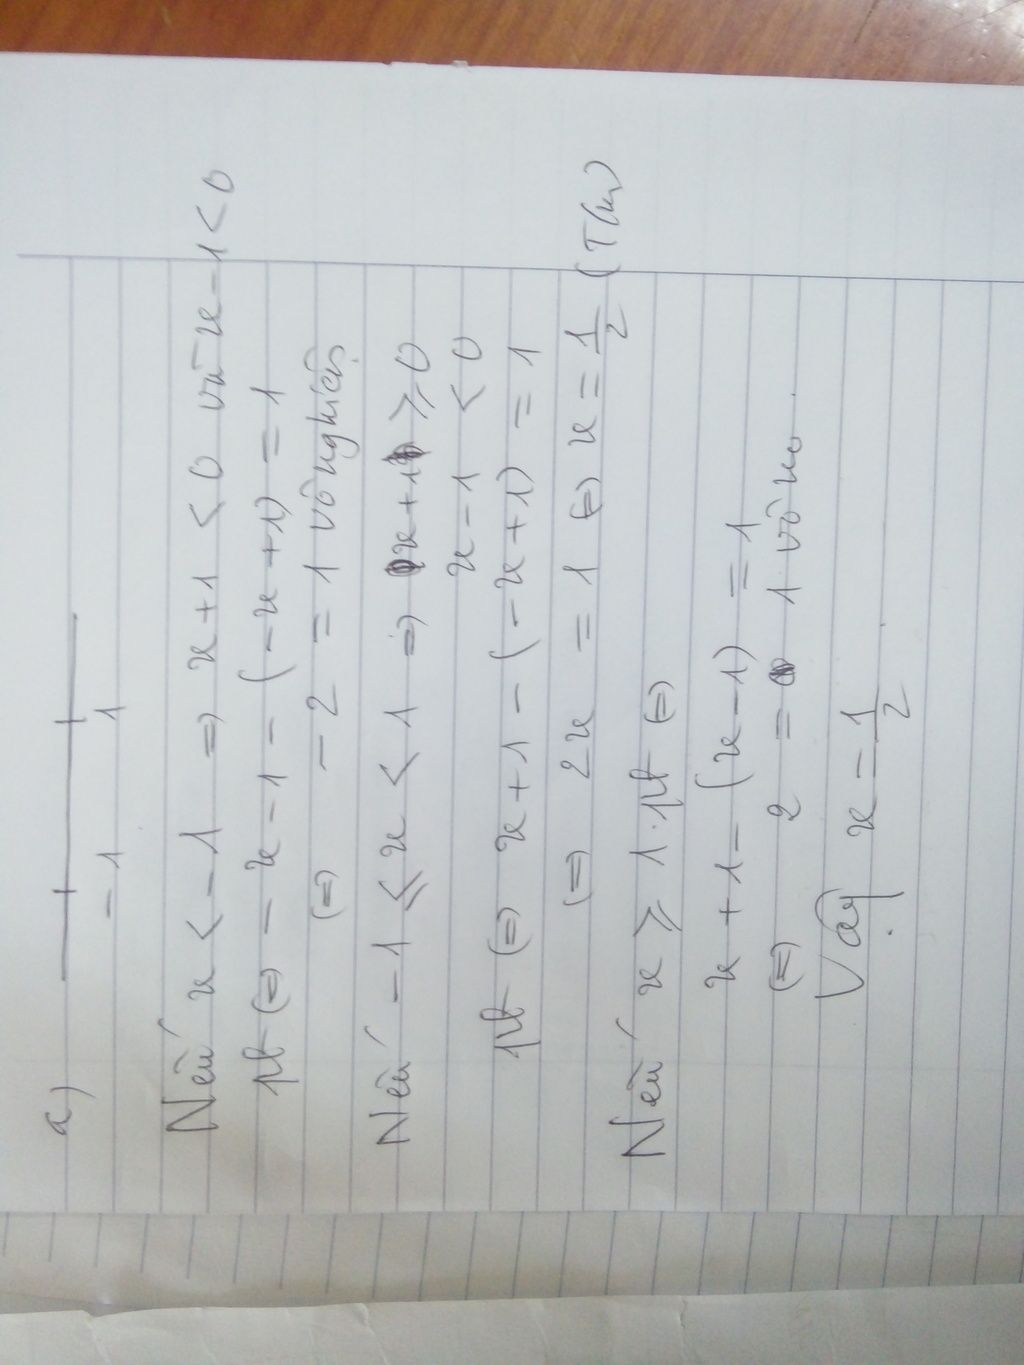 a)
-1 1
Nếu x < -1 => x+1 < 0 và x-1 < 0
pt (=) -x-1-(-x+1) = 1
(=) -2 = 1 vô nghiệm
Nếu -1 ≤ x < 1 => x+1 ≥ 0
x-1 < 0
pt (=) x+1-(-x+1) = 1
(=) 2x = 1 (=) x = 1/2 (T/m)
Nếu x ≥ 1. pt (=)
x+1-(x-1) = 1
(=) 2 = 1 vô no
Vậy x = 1/2